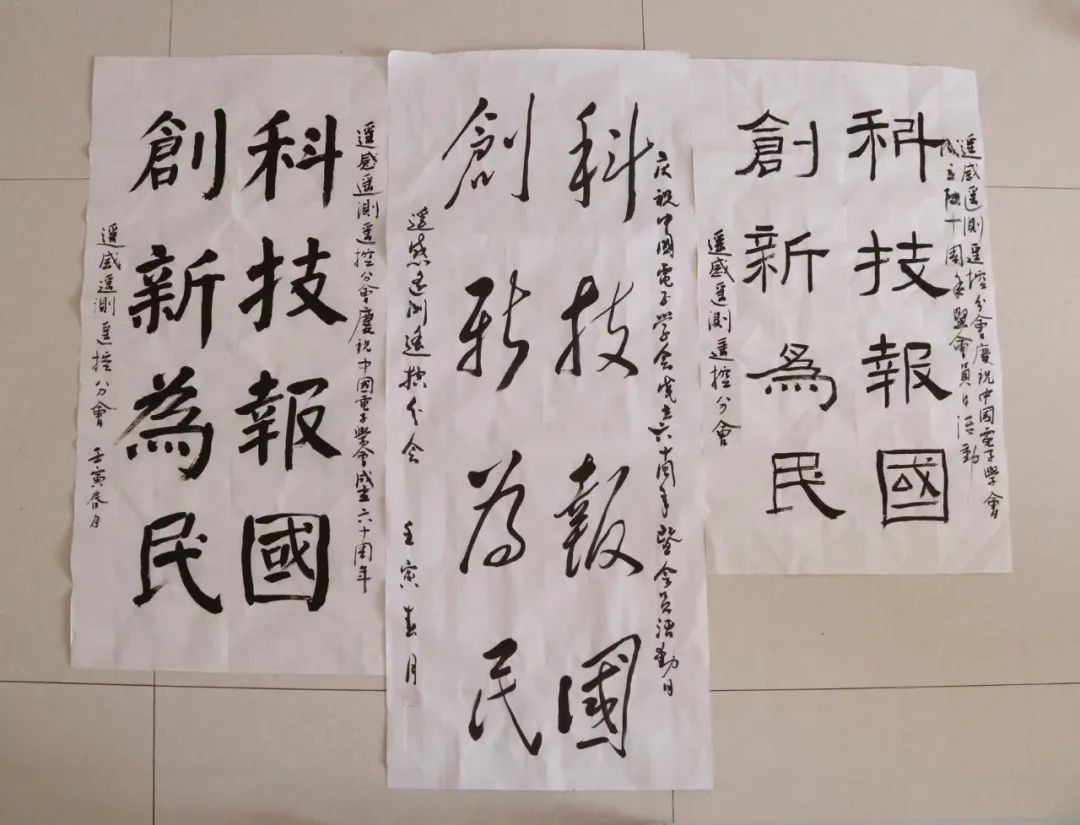 遥感遥測遥控分會慶祝中國電子學會成立六十周年
科技報國
創新為民
遥感遥測遥控分會 壬寅春月
庆祝中國電子学会成立六十周年暨会员活動日
科技报國
創新为民
遥感遥测遥控分会 壬寅春月
遥感遥測遥控分會慶祝中國電子學會
成立陆十周年暨會員日活動
科技報國
創新為民
遥感遥測遥控分會